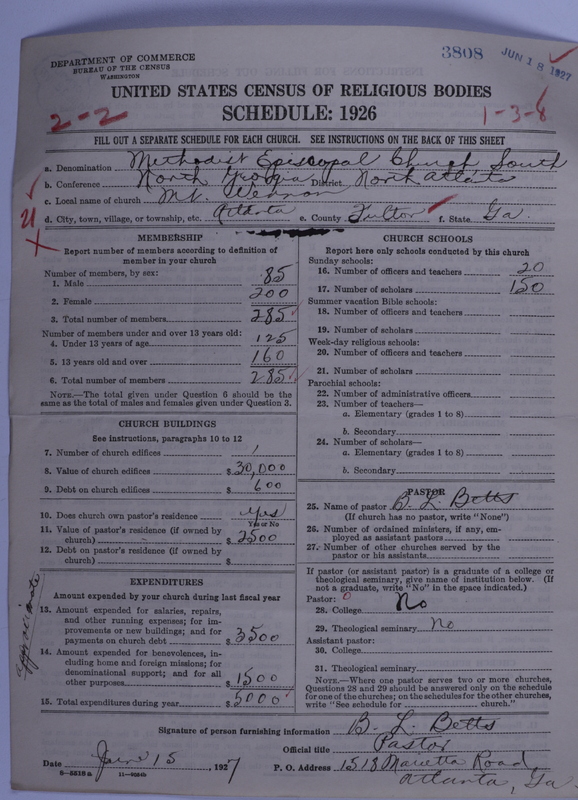 3808 JUN 18 1927
DEPARTMENT OF COMMERCE
BUREAU OF THE CENSUS
WASHINGTON
UNITED STATES CENSUS OF RELIGIOUS BODIES
SCHEDULE: 1926
2-2 1-3-8
FILL OUT A SEPARATE SCHEDULE FOR EACH CHURCH. SEE INSTRUCTIONS ON THE BACK OF THIS SHEET
a. Denomination Methodist Episcopal Church South
b. Conference North Georgia District North Atlanta
c. Local name of church Mt. Vernon
d. City, town, village, or township, etc. Atlanta e. County Fulton f. State Ga.
21
MEMBERSHIP
Report number of members according to definition of
member in your church
Number of members, by sex:
1. Male 85
2. Female 200
3. Total number of members 285
Number of members under and over 13 years old:
4. Under 13 years of age 125
5. 13 years old and over 160
6. Total number of members 285
NOTE.—The total given under Question 6 should be the
same as the total of males and females given under Question 3.
CHURCH BUILDINGS
See instructions, paragraphs 10 to 12
7. Number of church edifices 1
8. Value of church edifices $30,000
9. Debt on church edifices $600
10. Does church own pastor's residence yes
Yes or No
11. Value of pastor's residence (if owned by
church) $2500
12. Debt on pastor's residence (if owned by
church) $
EXPENDITURES
Amount expended by your church during last fiscal year
approximate
13. Amount expended for salaries, repairs,
and other running expenses; for im-
provements or new buildings; and for
payments on church debt $3500
14. Amount expended for benevolences, in-
cluding home and foreign missions; for
denominational support; and for all
other purposes $1500
15. Total expenditures during year $5000
CHURCH SCHOOLS
Report here only schools conducted by this church
Sunday schools:
16. Number of officers and teachers 20
17. Number of scholars 150
Summer vacation Bible schools:
18. Number of officers and teachers
19. Number of scholars
Week-day religious schools:
20. Number of officers and teachers
21. Number of scholars
Parochial schools:
22. Number of administrative officers
23. Number of teachers—
a. Elementary (grades 1 to 8)
b. Secondary
24. Number of scholars—
a. Elementary (grades 1 to 8)
b. Secondary
PASTOR
25. Name of pastor B. L. Betts
(If church has no pastor, write "None")
26. Number of ordained ministers, if any, em-
ployed as assistant pastors
27. Number of other churches served by the
pastor or his assistants
If pastor (or assistant pastor) is a graduate of a college or
theological seminary, give name of institution below. (If
not a graduate, write "No" in the space indicated.)
Pastor: 0
28. College No
29. Theological seminary No
Assistant pastor:
30. College
31. Theological seminary
NOTE.—Where one pastor serves two or more churches,
Questions 28 and 29 should be answered only on the schedule
for one of the churches; on the schedules for the other churches,
write "See schedule for church."
Signature of person furnishing information B. L. Betts
Official title Pastor
Date June 15, 1927 P. O. Address 1518 Marietta Road
Atlanta, Ga